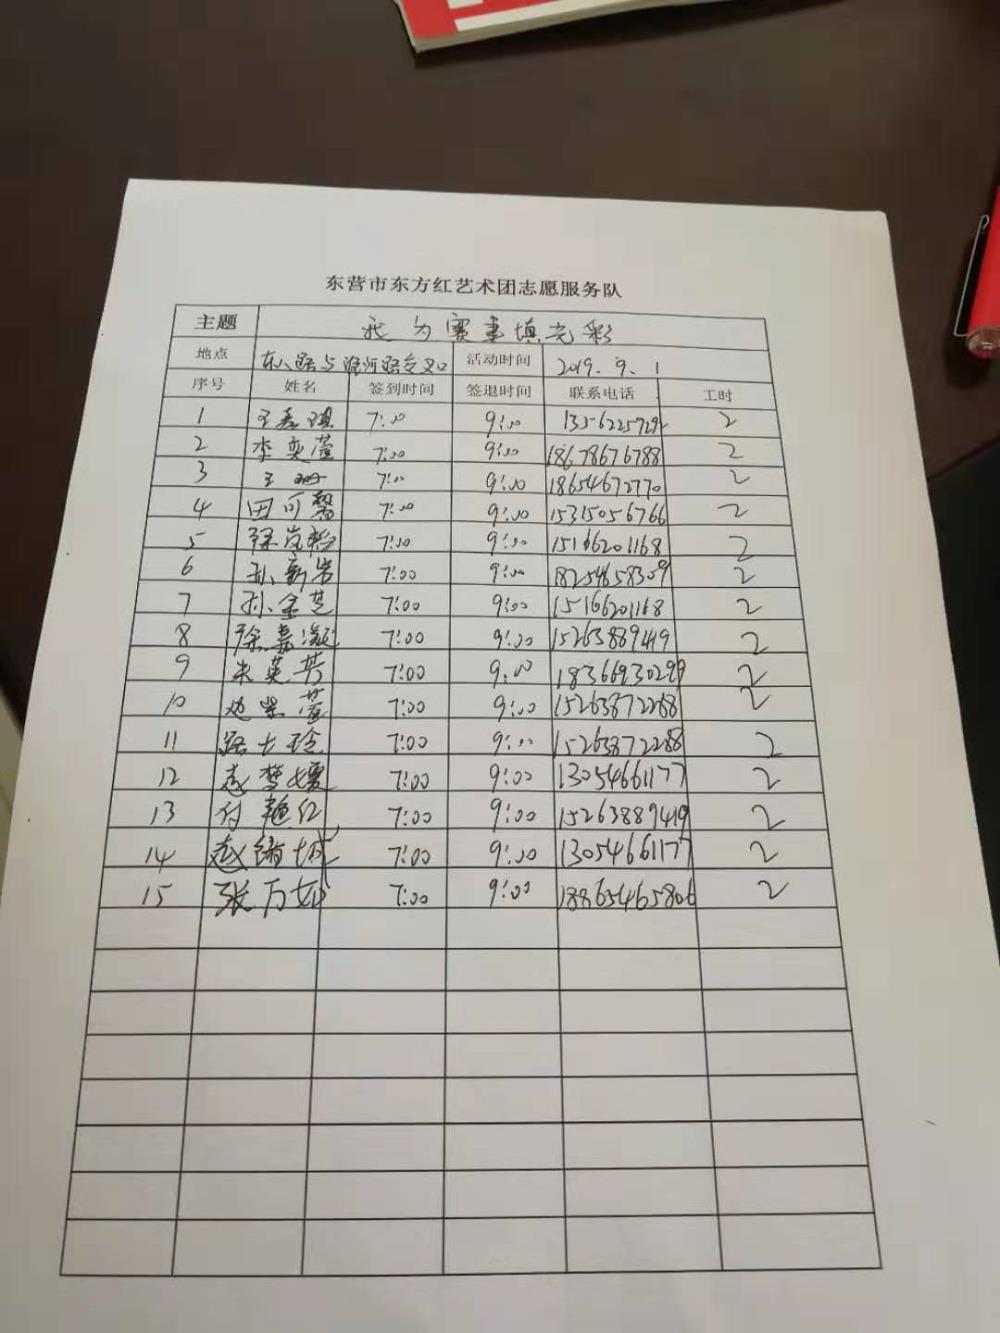 东营市东方红艺术团志愿服务队
主题 我为赛事填光彩
地点 东八路与 河路交叉口 活动时间 2019.9.1
序号 姓名 签到时间 签退时间 联系电话 工时
1 王 7:00 9:00 13562257292 2
2 李奕萱 7:00 9:00 18678676788 2
3 王 7:00 9:00 18654672770 2
4 田可馨 7:00 9:00 15315056766 2
5 徐岚 7:00 9:00 15166201168 2
6 孙新岩 7:00 9:00 18254658309 2
7 孙金芝 7:00 9:00 15166201168 2
8 徐嘉凝 7:00 9:00 15263889419 2
9 朱英芳 7:00 9:00 18366930299 2
10 萱 7:00 9:00 15263872288 2
11 路士玲 7:00 9:00 15263872288 2
12 赵梦媛 7:00 9:00 13054661177 2
13 付艳红 7:00 9:00 15263889419 2
14 赵绪城 7:00 9:00 13054661177 2
15 张万如 7:00 9:00 18865465806 2